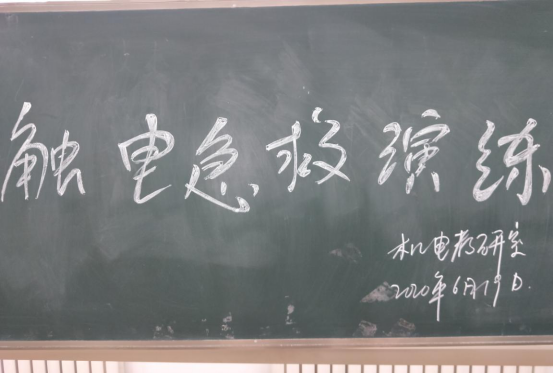 触电急救演练
机电教研室
2020年6月19日